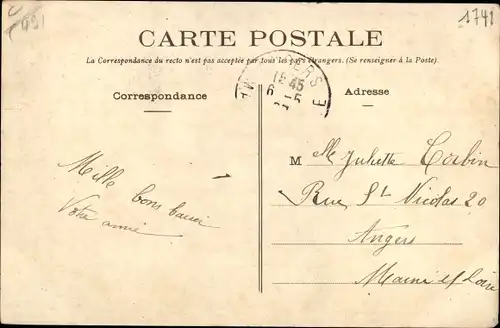 1741
491
CARTE POSTALE
La Correspondance du recto n'est pas acceptée par tous les pays étrangers. (Se renseigner à la Poste).
ERS
18 45
6 -5
E
Correspondance
Adresse
Mlle Juliette Corbin
Rue St Nicolas 20
Angers
Maine et Loire
Mille bons baisers
Votre amie